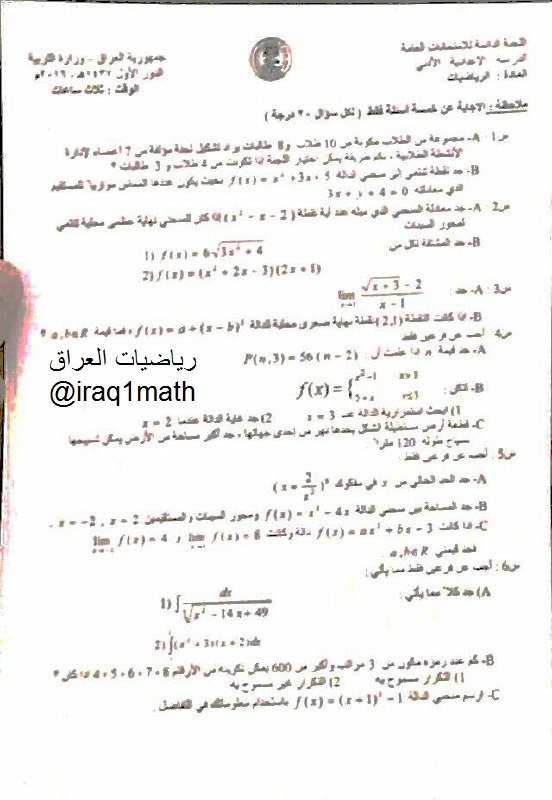 جمهورية العراق - وزارة التربية
الدور الأول ١٤٣٧هـ - ٢٠١٦م
الوقت : ثلاث ساعات
اللجنة الدائمة للامتحانات العامة
الدراسة الاعدادية / الأدبي
المادة : الرياضيات
ملاحظة : الاجابة عن خمسة أسئلة فقط ( لكل سؤال ٢٠ درجة )
س1: A- مجموعة من الطلاب مكونة من 10 طلاب و8 طالبات يراد تشكيل لجنة مؤلفة من 7 أعضاء لإدارة
الأنشطة الطلابية ، بكم طريقة يمكن اختيار اللجنة اذا تكونت من 4 طلاب و 3 طالبات ؟
B- جد نقطة تنتمي الى منحني الدالة f(x) = x² + 3x + 5 بحيث يكون عندها المماس موازيا للمستقيم
الذي معادلته 3x + y + 4 = 0
س2: A- جد معادلة المنحني الذي ميله عند أية نقطة (x² - x - 2) اذا كان للمنحني نهاية عظمى محلية تنتمي
لمحور السينات
B- جد المشتقة لكل من
1) f(x) = 6√(3x² + 4)
2) f(x) = (x² + 2x - 3)(2x + 1)
س3: A- جد : lim x→1 (√(x + 3) - 2)/(x - 1)
B- اذا كانت النقطة (2,1) نقطة نهاية صغرى محلية للدالة f(x) = a + (x - b)² ، فما قيمة a, b∈R ؟
س4: أجب عن فرعين فقط
A- جد قيمة n اذا علمت أن : P(n,3) = 56(n - 2)
رياضيات العراق
@iraq1math
B- لتكن : f(x) = { x² - 1 x>3
5 + x x≤3
1) ابحث استمرارية الدالة عند x = 3 2) جد غاية الدالة عندما x = 2
C- قطعة أرض مستطيلة الشكل يحدها نهر من إحدى جهاتها ، جد أكبر مساحة من الأرض يمكن تسييجها
بسياج طوله 120 مترا
س5: أجب عن فرعين فقط :
A- جد الحد الخالي من x في مفكوك (x = 2/x²)⁹
B- جد المساحة بين منحني الدالة f(x) = x³ - 4x ومحور السينات والمستقيمين x = 2 ، x = -2 .
C- اذا كانت f(x) = ax² + bx - 3 دالة وكانت lim f(x) = 8 و lim f(x) = 4
فجد قيمتي a, b∈R .
س6: أجب عن فرعين فقط مما يأتي :
A) جد كلا مما يأتي :
1) ∫ dx/√(x² - 14x + 49)
2) ∫(x² + 3)(x + 2)dx
B- كم عدد رمزه مكون من 3 مراتب وأكبر من 600 يمكن تكوينه من الأرقام 4 ، 5 ، 6 ، 7 ، 8 اذا كان ؟
1) التكرار مسموح به 2) التكرار غير مسموح به
C- ارسم منحني الدالة f(x) = (x + 1)³ - 1 باستخدام معلوماتك في التفاضل .